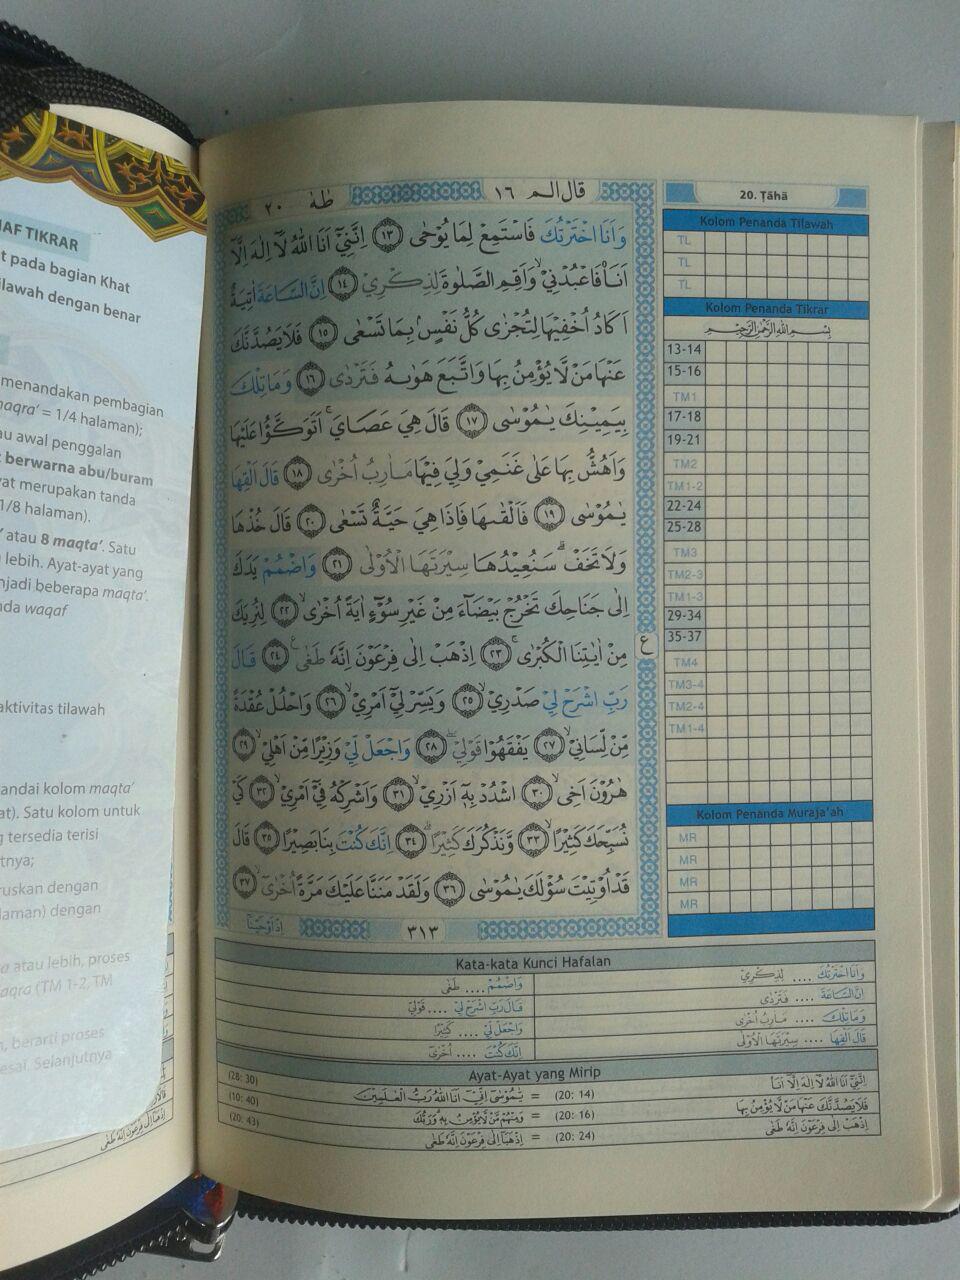 AF TIKRAR
t pada bagian Khat
ilawah dengan benar
menandakan pembagian
maqra' = 1/4 halaman);
au awal penggalan
berwarna abu/buram
yat merupakan tanda
1/8 halaman).
atau 8 maqta'. Satu
lebih. Ayat-ayat yang
njadi beberapa maqta'.
nda waqaf
aktivitas tilawah
andai kolom maqta'
at). Satu kolom untuk
g tersedia terisi
tnya;
ruskan dengan
laman) dengan
a atau lebih, proses
aqra (TM 1-2, TM
n, berarti proses
esai. Selanjutnya
قال الم ١٦
طه ٢٠
وَاَنَا اخْتَرْتُكَ فَاسْتَمِعْ لِمَا يُوْحٰى ﴿١٣﴾ اِنَّنِيْٓ اَنَا اللّٰهُ لَآ اِلٰهَ اِلَّآ
اَنَا۠ فَاعْبُدْنِيْۙ وَاَقِمِ الصَّلٰوةَ لِذِكْرِيْ ﴿١٤﴾ اِنَّ السَّاعَةَ اٰتِيَةٌ
اَكَادُ اُخْفِيْهَا لِتُجْزٰى كُلُّ نَفْسٍۢ بِمَا تَسْعٰى ﴿١٥﴾ فَلَا يَصُدَّنَّكَ
عَنْهَا مَنْ لَّا يُؤْمِنُ بِهَا وَاتَّبَعَ هَوٰىهُ فَتَرْدٰى ﴿١٦﴾ وَمَا تِلْكَ
بِيَمِيْنِكَ يٰمُوْسٰى ﴿١٧﴾ قَالَ هِيَ عَصَايَۚ اَتَوَكَّؤُا عَلَيْهَا
وَاَهُشُّ بِهَا عَلٰى غَنَمِيْ وَلِيَ فِيْهَا مَاٰرِبُ اُخْرٰى ﴿١٨﴾ قَالَ اَلْقِهَا
يٰمُوْسٰى ﴿١٩﴾ فَاَلْقٰىهَا فَاِذَا هِيَ حَيَّةٌ تَسْعٰى ﴿٢٠﴾ قَالَ خُذْهَا
وَلَا تَخَفْۗ سَنُعِيْدُهَا سِيْرَتَهَا الْاُوْلٰى ﴿٢١﴾ وَاضْمُمْ يَدَكَ
اِلٰى جَنَاحِكَ تَخْرُجْ بَيْضَاۤءَ مِنْ غَيْرِ سُوْۤءٍ اٰيَةً اُخْرٰىۙ ﴿٢٢﴾ لِنُرِيَكَ
مِنْ اٰيٰتِنَا الْكُبْرٰىۚ ﴿٢٣﴾ اِذْهَبْ اِلٰى فِرْعَوْنَ اِنَّهٗ طَغٰىۚ ﴿٢٤﴾ قَالَ
ع
رَبِّ اشْرَحْ لِيْ صَدْرِيْۙ ﴿٢٥﴾ وَيَسِّرْ لِيْٓ اَمْرِيْۙ ﴿٢٦﴾ وَاحْلُلْ عُقْدَةً
مِّنْ لِّسَانِيْۙ ﴿٢٧﴾ يَفْقَهُوْا قَوْلِيْۖ ﴿٢٨﴾ وَاجْعَلْ لِّيْ وَزِيْرًا مِّنْ اَهْلِيْۙ ﴿٢٩﴾
هٰرُوْنَ اَخِىۙ ﴿٣٠﴾ اشْدُدْ بِهٖٓ اَزْرِيْۙ ﴿٣١﴾ وَاَشْرِكْهُ فِيْٓ اَمْرِيْۙ ﴿٣٢﴾ كَيْ
نُسَبِّحَكَ كَثِيْرًاۙ ﴿٣٣﴾ وَّنَذْكُرَكَ كَثِيْرًاۗ ﴿٣٤﴾ اِنَّكَ كُنْتَ بِنَا بَصِيْرًا ﴿٣٥﴾ قَالَ
قَدْ اُوْتِيْتَ سُؤْلَكَ يٰمُوْسٰى ﴿٣٦﴾ وَلَقَدْ مَنَنَّا عَلَيْكَ مَرَّةً اُخْرٰىٓۙ ﴿٣٧﴾
٣١٣
اِذْ اَوْحَيْنَآ
20. Ṭāhā
Kolom Penanda Tilawah
TL
TL
TL
Kolom Penanda Tikrar
بِسْمِ اللّٰهِ الرَّحْمٰنِ الرَّحِيْمِ
13-14
15-16
TM1
17-18
19-21
TM2
TM1-2
22-24
25-28
TM3
TM2-3
TM1-3
29-34
35-37
TM4
TM3-4
TM2-4
TM1-4
Kolom Penanda Muraja'ah
MR
MR
MR
MR
Kata-kata Kunci Hafalan
وَاَنَا اخْتَرْتُكَ .... لِذِكْرِيْ
وَاضْمُمْ .... طَغٰى
اِنَّ السَّاعَةَ .... فَتَرْدٰى
قَالَ رَبِّ اشْرَحْ لِيْ .... قَوْلِيْ
وَمَا تِلْكَ .... مَاٰرِبُ اُخْرٰى
وَاجْعَلْ لِّيْ .... كَثِيْرًا
قَالَ اَلْقِهَا .... سِيْرَتَهَا الْاُوْلٰى
اِنَّكَ كُنْتَ .... اُخْرٰىٓ
Ayat-Ayat yang Mirip
اِنَّنِيْٓ اَنَا اللّٰهُ لَآ اِلٰهَ اِلَّآ اَنَا۠ (20: 14) = يّٰمُوْسٰٓى اِنِّيْٓ اَنَا اللّٰهُ رَبُّ الْعٰلَمِيْنَ (28: 30)
فَلَا يَصُدَّنَّكَ عَنْهَا مَنْ لَّا يُؤْمِنُ بِهَا (20: 16) = وَمِنْهُمْ مَّنْ لَّا يُؤْمِنُ بِهٖۗ وَرَبُّكَ (10: 40)
اِذْهَبْ اِلٰى فِرْعَوْنَ اِنَّهٗ طَغٰى (20: 24) = اِذْهَبَآ اِلٰى فِرْعَوْنَ اِنَّهٗ طَغٰى (20: 43)